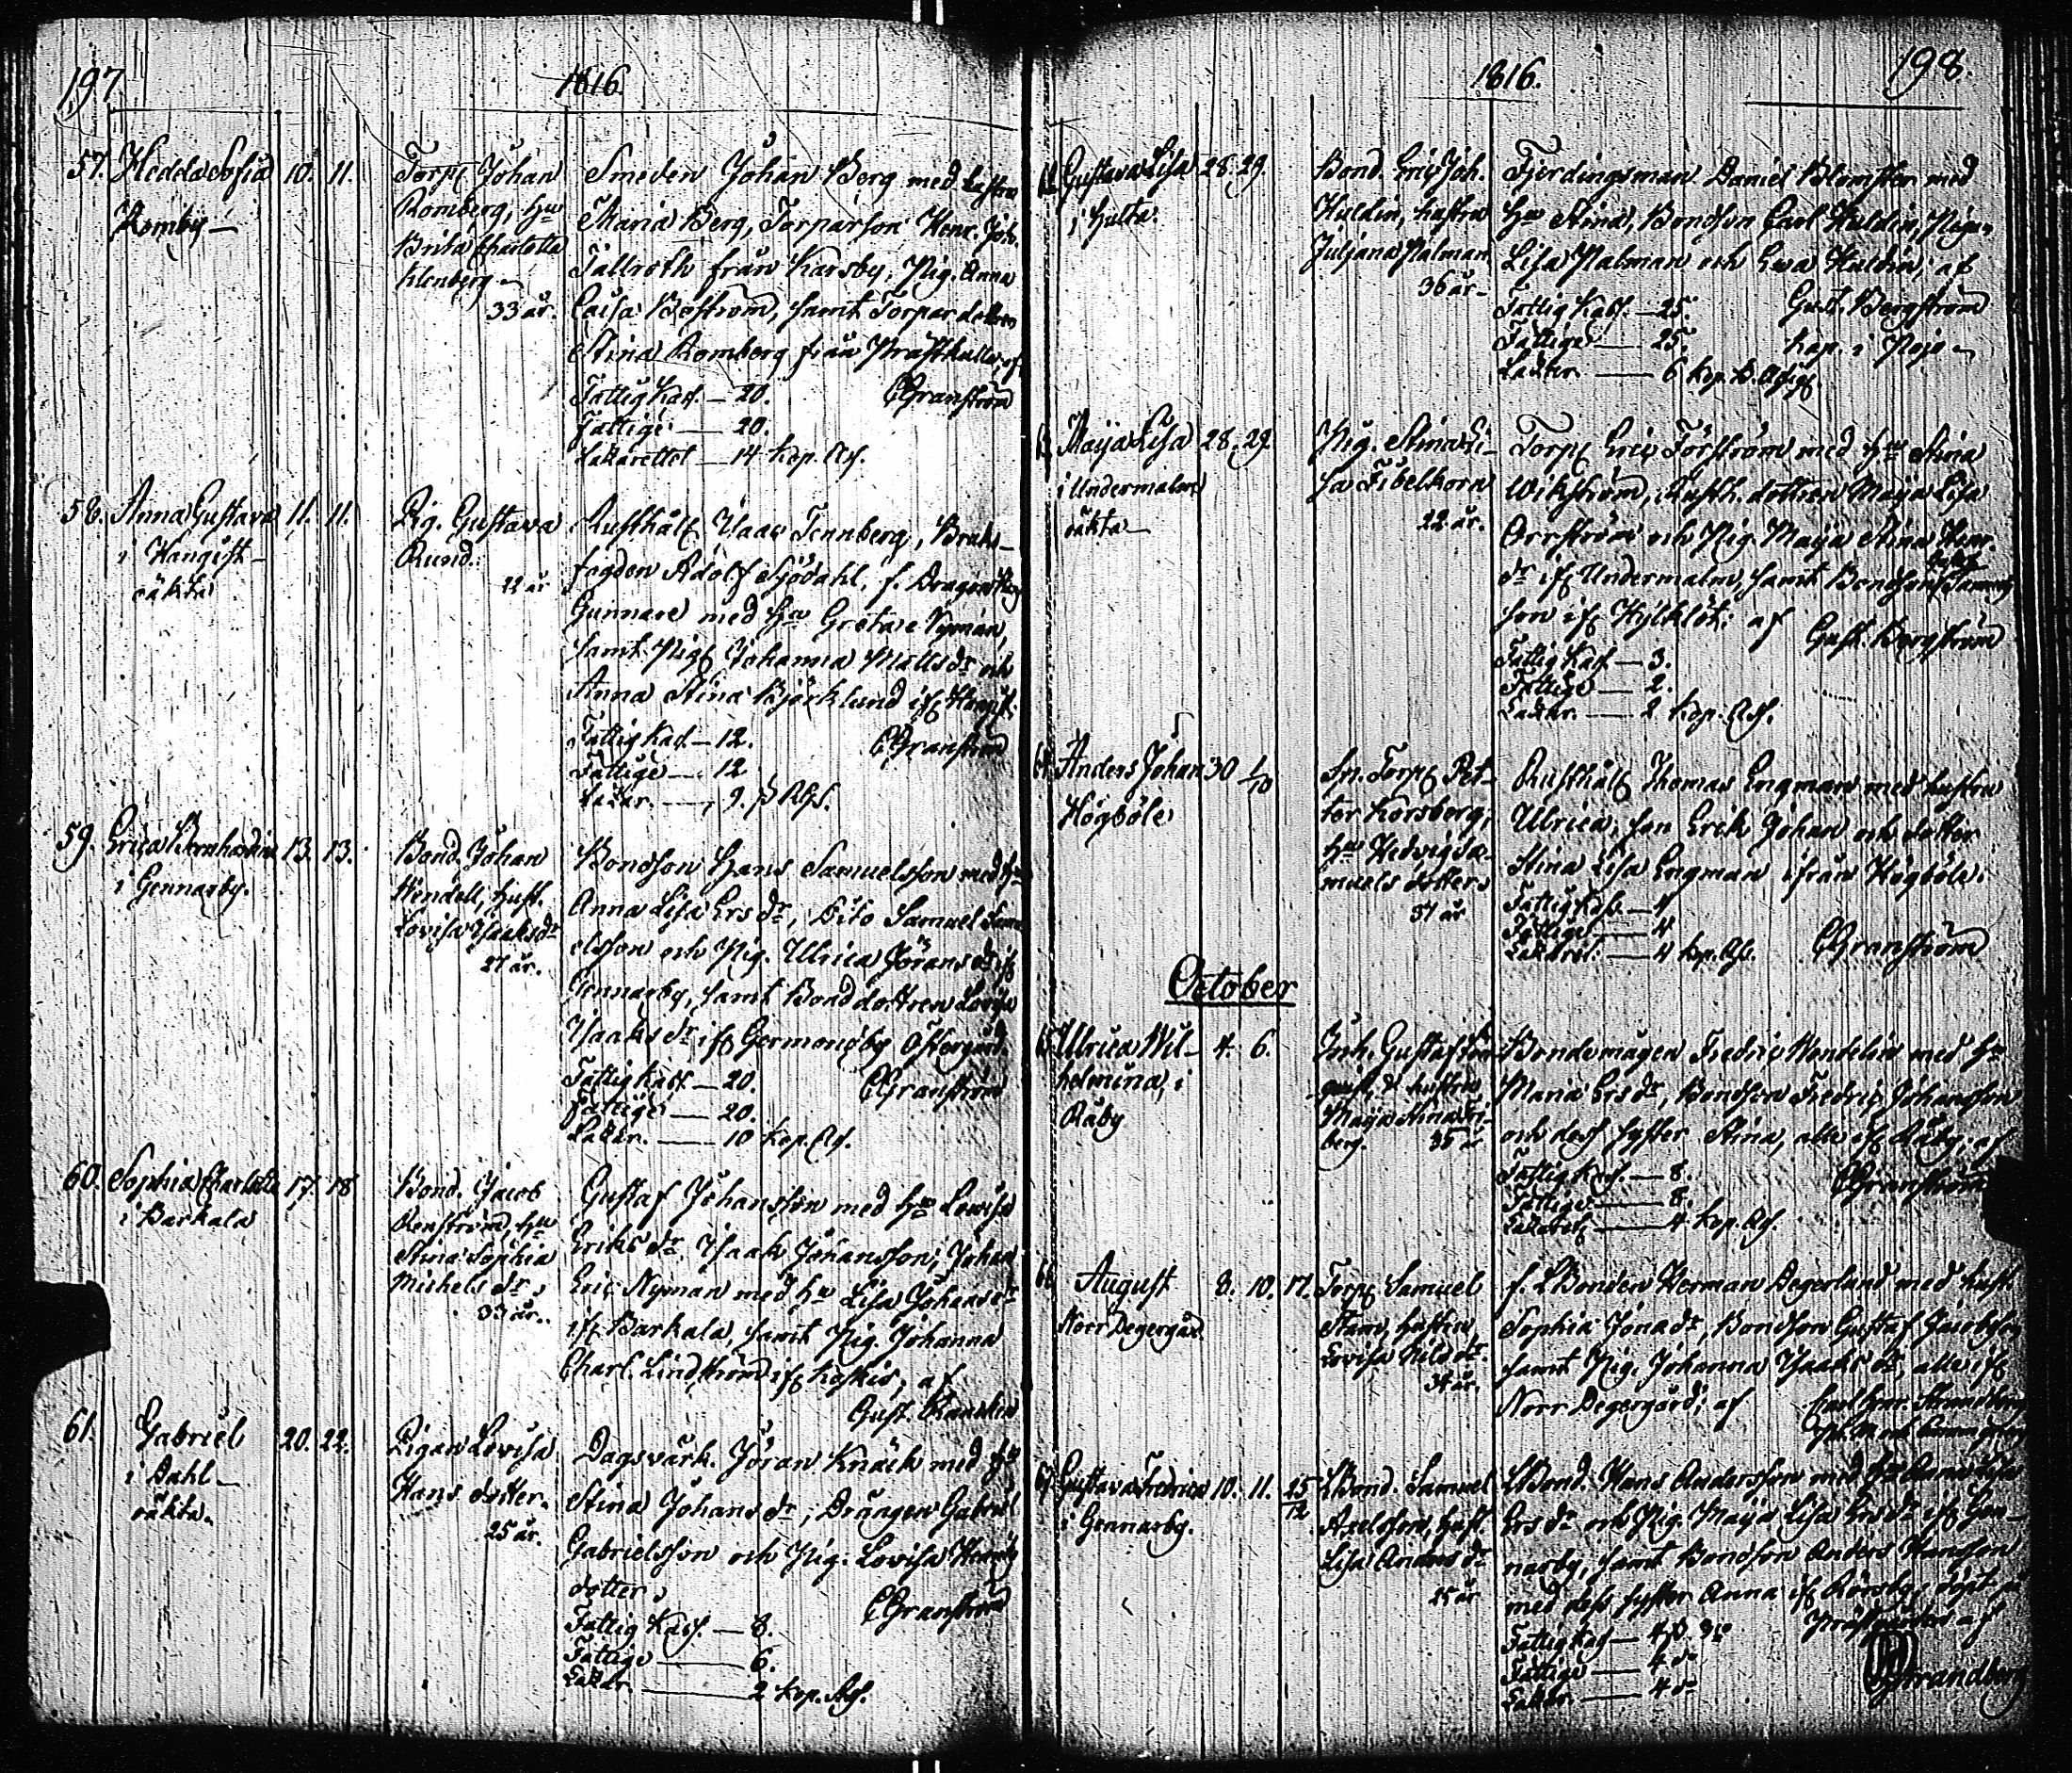 197
1816.
57. Hedda Sofia 10. 11.
Romby
Torp. Johan
Romberg, hu
Brita Charlotta
Klenberg
33 år.
Smeden Johan Berg med hustru
Maria Berg, Torparson Henr. Joh.
Tallroth från Karsby, Pig. Anna
Caisa Boström, samt Torpardottren
Stina Romberg från Prästkulla, af
Fattig Kass. — 20.
CGranström
Fattige — 20.
Lazarettet — 14 Kop. Rss.
58. Anna Gustava 11. 11.
i Hangist
oäkta
Pig. Gustava
Rund.
22 år
Rusthåll. Isaac Tennberg, Bruks-
fogden Adolf Sjödahl, f. Dragon
Gunnare med hu Greta Nyman,
samt Pig. Johanna Mattsdr och
Anna Stina Björklund if. Hangist.
Fattig Kass. — 12.
CGranström
Fattige — 12
Lazar. — 9. β RGs.
59. Erica Bernhardina 13. 13.
i Gennarby.
Bond. Johan
Wendell, hust.
Lovisa Isaksdr
27 år.
Bondson Hans Samuelsson med hu
Anna Lisa Ersdr, Dito Samuel Samu-
elsson och Pig. Ulrica Göransdr if.
Gennarby, samt Bonddottren Lovisa
Isaksdr if. Germundby Östergård.
Fattig Kass — 20.
CGranström
Fattige — 20.
Lazar. — 10 Kop. Rs.
60. Sophia Charlotta 17. 18
i Barkala
Bond. Jacob
Renström, hu
Stina Sophia
Michelsdr
33 år.
Gustaf Johansson med hu Lovisa
Eriksdr Isaak Johansson, Johan
Eric Nyman med hu Lisa Johansdr
if. Barkala, samt Pig. Johanna
Charl. Lindström if. Koskis, af
Gust.
61. Gabriel 20. 22.
i Dahl
oäkta.
Pigan Lovisa
Hans dotter.
25 år.
Dagsvärk. Jöran Knäck med hu
Stina Johansdr, Drängen Gabriel
Gabrielsson och Pig. Lovisa
dotter
CGranström
Fattig Kass. — 8.
Fattige — 6.
Lazar. — 2 Kop. Rss.
1816.
198.
Gustava Lisa 28. 29.
i Hulta.
Bond. Eric Joh.
Huldin, hustru
Juliana Palman
36 år
Fjerdingsman Daniel Blomster med
hu Stina, Bondson Carl Huldin, Pigan
Lisa Palman och Ewa Huldin; af
Fattig Kass. — 25.
Gust. Bergström
Fattige — 25.
Kap. i Pojo
Lazar. — 6 Kop. B.
Maja Lisa 28. 29.
i Undermalm
oäkta
Pig. Stina Li-
sa Fibelkorn
22 år.
Torp. Eric Förström med hu Stina
Wikström, Rusth. dottren Maja Lisa
Orrström och Pig. Maja Stina Henr.
dr if. Undermalm, samt Bondson
son if. af
Gust. Bergström
Fattig Kass. — 3.
Fattige — 2.
Lazar. — 2 Kop. Rss.
Anders Johan 30 1/10
Högböle
Sn. Torp. Pet-
ter Korsberg,
hu Hedvig Sa-
muels dotter
37 år
Rusthåll. Thomas Engman med hustru
Ulrica, son Erik Johan och dotter
Stina Lisa Engman ifrån Högböle.
Fattig Kass. — 4
Fattige — 4
Lazaret. — 4 Kop. Rss.
CGranström
October
Ulrica Wil- 4. 6.
helmina, i
Råby
Inh. Gustaf
hustru
Maja Stina
berg. 35 år
Bondemågen Fredric Wendelin med hu
Maria Ersdr, Bondson Fredric Johansson
och dess syster Stina, alla if. Råby; af
Fattig Kass. — 8.
CGranström
Fattige — 8.
Lazaret — 4 Kop. Rss.
August 8. 10. 17.
Norr Degergård
Torp. Samuel
Stam, hustru
Lovisa Nilsdr.
34 år.
f. LBonden Herman Degerlund med hust.
Sophia Jonadr, Bondson Gustaf Jacobsson
samt Pig. Johanna Isaaksdr, alla if.
Norr Degergård; af
Gustava Fredrica 10. 11. 25/12
i Gennarby.
LBond. Samuel
Axelsson, hust.
Lisa Andersdr
25 år
LBond. Hans Andersson med hu Anna Lisa
Ersdr och Pig. Maja Lisa Ersdr if. Gen-
narby, samt Bondson Anders Hansson
med dess syster Anna if. Rörsby; döpt
Fattig Kass — 4
Fattige — 4 dr
Lazar. — 4 dr
Strandberg